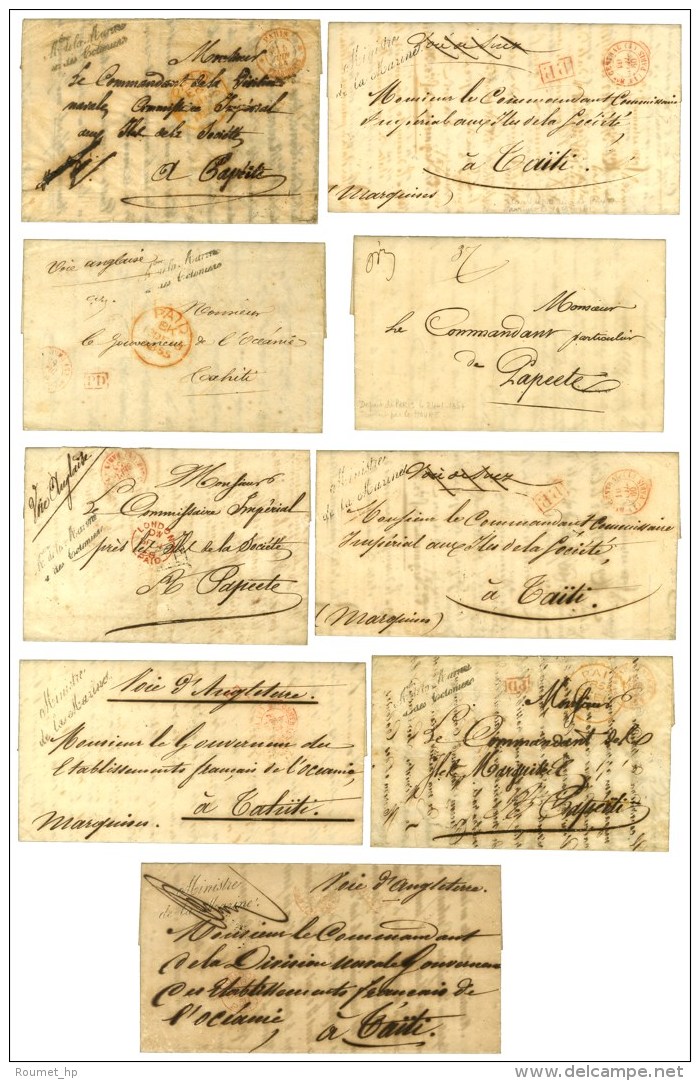 Mtre de la Marine
et des Colonies
PARIS
Monsieur
Le Commandant de la Station
navale, Commissaire Impérial
aux Iles de la Société
A Papéiti
Ministre
de la Marine
Voie de Suez
P.P.
Monsieur le Commandant Commissaire
Impérial aux Iles de la Société,
à Taïti.
(Marquises)
Voie anglaise
Mtre de la Marine
et des Colonies
PAID
Monsieur
le Gouverneur de l'Océanie
Tahiti
PD
37
Monsieur
Le Commandant particulier
de Papeete
Voie Anglaise
Monsieur
Le Commissaire Impérial
près les Iles de la Société
à Papeete
Mtre de la Marine
et des Colonies
LONDON
PAID
Ministre
de la Marine
Voie de Suez
P.P.
Monsieur le Commandant Commissaire
Impérial aux Iles de la Société,
à Taïti.
(Marquises)
Ministre
de la Marine
Voie d'Angleterre.
Monsieur le Gouverneur des
Etablissements français de l'océanie,
à Tahiti.
Marquises.
Mtre de la Marine
et des Colonies
PD
Monsieur
Le Commandant des
Iles Marquises
Papéiti
Ministre
de la Marine
Voie d'Angleterre.
Monsieur le Commandant
de la Division navale Gouverneur
des Etablissements français de
l'océanie,
à Taïti.
Roumet_hp
delcampe.net